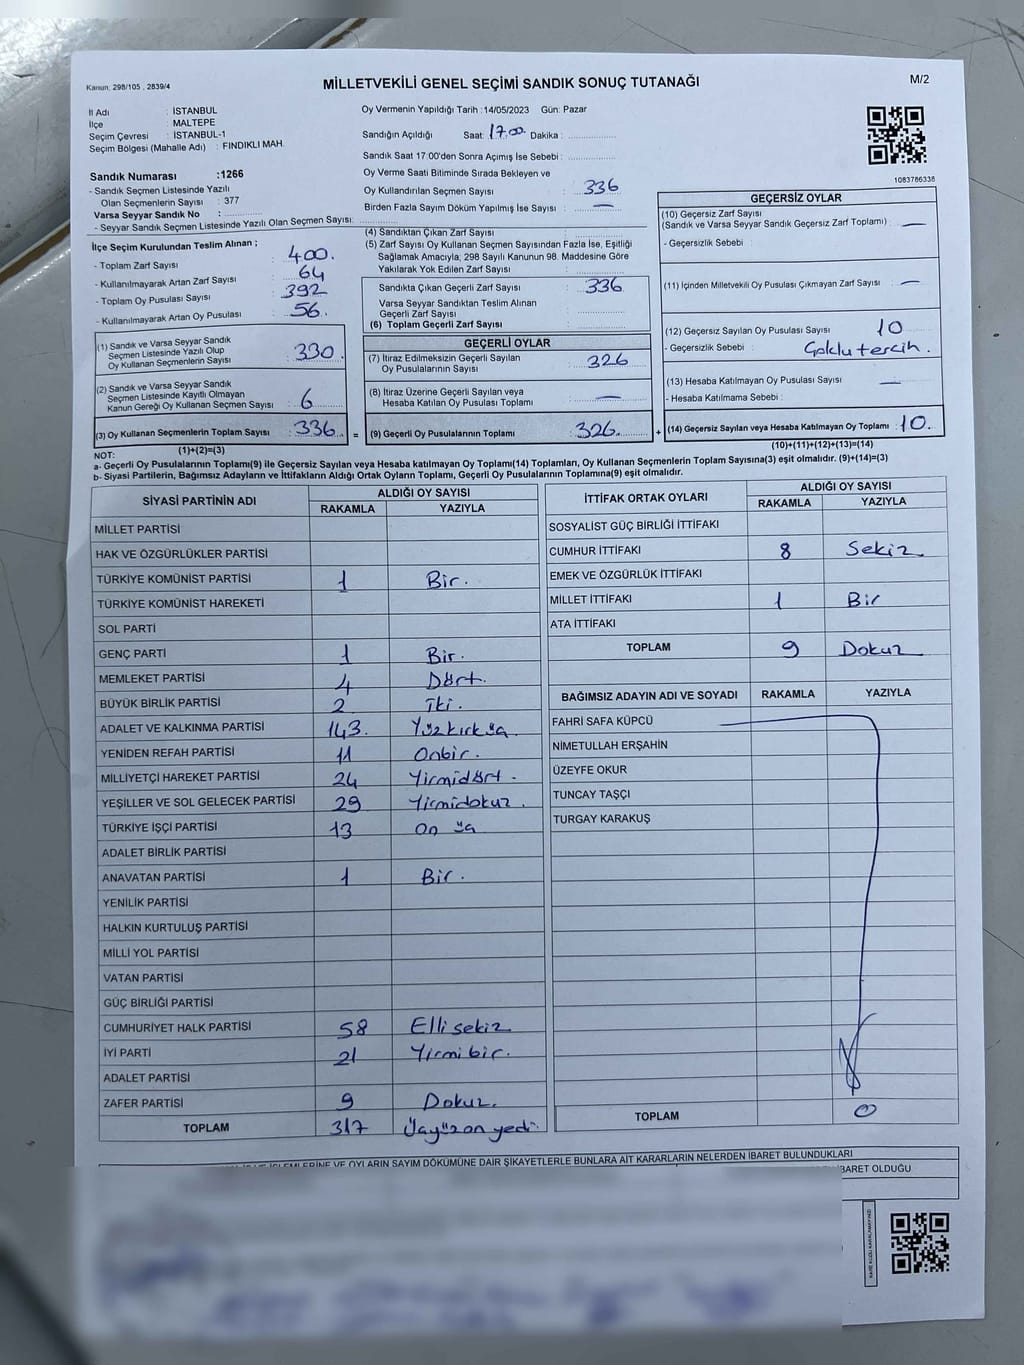 Kanun, 298/105 , 2839/4
MİLLETVEKİLİ GENEL SEÇİMİ SANDIK SONUÇ TUTANAĞI
M/2
İl Adı : İSTANBUL
İlçe : MALTEPE
Seçim Çevresi : İSTANBUL-1
Seçim Bölgesi (Mahalle Adı) : FINDIKLI MAH.
Oy Vermenin Yapıldığı Tarih :14/05/2023 Gün: Pazar
Sandığın Açıldığı Saat: 17.00 Dakika :
Sandık Saat 17:00'den Sonra Açımış İse Sebebi :
Oy Verme Saati Bitiminde Sırada Bekleyen ve
Oy Kullandırılan Seçmen Sayısı : 336
Birden Fazla Sayım Döküm Yapılmış İse Sayısı : —
1083786338
Sandık Numarası :1266
- Sandık Seçmen Listesinde Yazılı
Olan Seçmenlerin Sayısı : 377
Varsa Seyyar Sandık No :
- Seyyar Sandık Seçmen Listesinde Yazılı Olan Seçmen Sayısı:
İlçe Seçim Kurulundan Teslim Alınan ;
- Toplam Zarf Sayısı : 400.
- Kullanılmayarak Artan Zarf Sayısı : 64
- Toplam Oy Pusulası Sayısı : 392
- Kullanılmayarak Artan Oy Pusulası : 56.
(1) Sandık ve Varsa Seyyar Sandık
Seçmen Listesinde Yazılı Olup
Oy Kullanan Seçmenlerin Sayısı : 330
(2) Sandık ve Varsa Seyyar Sandık
Seçmen Listesinde Kayıtlı Olmayan
Kanun Gereği Oy Kullanan Seçmen Sayısı : 6
(3) Oy Kullanan Seçmenlerin Toplam Sayısı : 336
(1)+(2)=(3)
(4) Sandıktan Çıkan Zarf Sayısı :
(5) Zarf Sayısı Oy Kullanan Seçmen Sayısından Fazla İse, Eşitliği
Sağlamak Amacıyla, 298 Sayılı Kanunun 98. Maddesine Göre
Yakılarak Yok Edilen Zarf Sayısı :
Sandıkta Çıkan Geçerli Zarf Sayısı : 336
Varsa Seyyar Sandıktan Teslim Alınan
Geçerli Zarf Sayısı :
(6) Toplam Geçerli Zarf Sayısı :
GEÇERLİ OYLAR
(7) İtiraz Edilmeksizin Geçerli Sayılan
Oy Pusulalarının Sayısı : 326
(8) İtiraz Üzerine Geçerli Sayılan veya
Hesaba Katılan Oy Pusulası Toplamı : —
= (9) Geçerli Oy Pusulalarının Toplamı : 326.
GEÇERSİZ OYLAR
(10) Geçersiz Zarf Sayısı
(Sandık ve Varsa Seyyar Sandık Geçersiz Zarf Toplamı) : —
- Geçersizlik Sebebi :
(11) İçinden Milletvekili Oy Pusulası Çıkmayan Zarf Sayısı : —
(12) Geçersiz Sayılan Oy Pusulası Sayısı : 10
- Geçersizlik Sebebi : Çoklu tercih.
(13) Hesaba Katılmayan Oy Pusulası Sayısı : —
- Hesaba Katılmama Sebebi :
+ (14) Geçersiz Sayılan veya Hesaba Katılmayan Oy Toplamı : 10.
(10)+(11)+(12)+(13)=(14)
NOT:
a- Geçerli Oy Pusulalarının Toplamı(9) ile Geçersiz Sayılan veya Hesaba katılmayan Oy Toplamı(14) Toplamları, Oy Kullanan Seçmenlerin Toplam Sayısına(3) eşit olmalıdır. (9)+(14)=(3)
b- Siyasi Partilerin, Bağımsız Adayların ve İttifakların Aldığı Ortak Oyların Toplamı, Geçerli Oy Pusulalarının Toplamına(9) eşit olmalıdır.
SİYASİ PARTİNİN ADI ALDIĞI OY SAYISI
RAKAMLA YAZIYLA
MİLLET PARTİSİ
HAK VE ÖZGÜRLÜKLER PARTİSİ
TÜRKİYE KOMÜNİST PARTİSİ 1 Bir.
TÜRKİYE KOMÜNİST HAREKETİ
SOL PARTİ
GENÇ PARTİ 1 Bir.
MEMLEKET PARTİSİ 4 Dört.
BÜYÜK BİRLİK PARTİSİ 2 iki.
ADALET VE KALKINMA PARTİSİ 143. Yüzkırküç.
YENİDEN REFAH PARTİSİ 11 Onbir.
MİLLİYETÇİ HAREKET PARTİSİ 24 Yirmidört.
YEŞİLLER VE SOL GELECEK PARTİSİ 29 Yirmidokuz.
TÜRKİYE İŞÇİ PARTİSİ 13 On üç
ADALET BİRLİK PARTİSİ
ANAVATAN PARTİSİ 1 Bir.
YENİLİK PARTİSİ
HALKIN KURTULUŞ PARTİSİ
MİLLİ YOL PARTİSİ
VATAN PARTİSİ
GÜÇ BİRLİĞİ PARTİSİ
CUMHURİYET HALK PARTİSİ 58 Elli sekiz
İYİ PARTİ 21 Yirmi bir.
ADALET PARTİSİ
ZAFER PARTİSİ 9 Dokuz.
TOPLAM 317 Üçyüz on yedi
İTTİFAK ORTAK OYLARI ALDIĞI OY SAYISI
RAKAMLA YAZIYLA
SOSYALİST GÜÇ BİRLİĞİ İTTİFAKI
CUMHUR İTTİFAKI 8 Sekiz.
EMEK VE ÖZGÜRLÜK İTTİFAKI
MİLLET İTTİFAKI 1 Bir
ATA İTTİFAKI
TOPLAM 9 Dokuz
BAĞIMSIZ ADAYIN ADI VE SOYADI RAKAMLA YAZIYLA
FAHRİ SAFA KÜPCÜ
NİMETULLAH ERŞAHİN
ÜZEYFE OKUR
TUNCAY TAŞÇI
TURGAY KARAKUŞ
TOPLAM 0
İŞLEMLERİNE VE OYLARIN SAYIM DÖKÜMÜNE DAİR ŞİKAYETLERLE BUNLARA AİT KARARLARIN NELERDEN İBARET BULUNDUKLARI
İBARET OLDUĞU